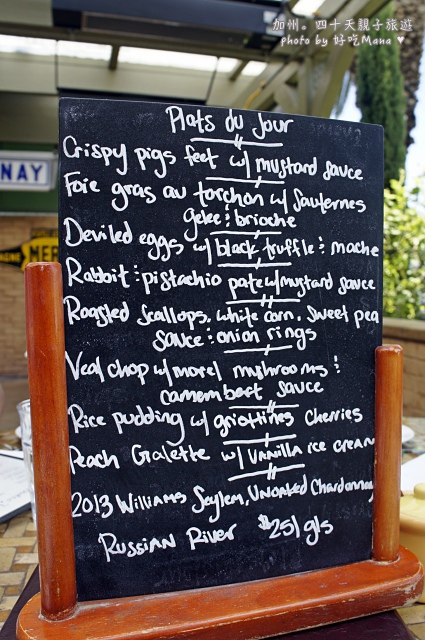 加州。四十天親子旅遊
photo by 好吃Mana ♥
NAY
MER
Plats du Jour
Crispy pigs feet w/ mustard sauce
Foie gras au torchon w/ Sauternes
gelee : brioche
Deviled eggs w/ black truffle : mache
Rabbit : pistachio pate w/ mustard sauce
Roasted scallops, white corn, sweet pea
sauce : onion rings
Veal chop w/ morel mushrooms :
camembert sauce
Rice pudding w/ griottines cherries
Peach Galette w/ vanilla ice cream
2013 Williams Seylem, Unoaked Chardonnay
Russian River $25/gls